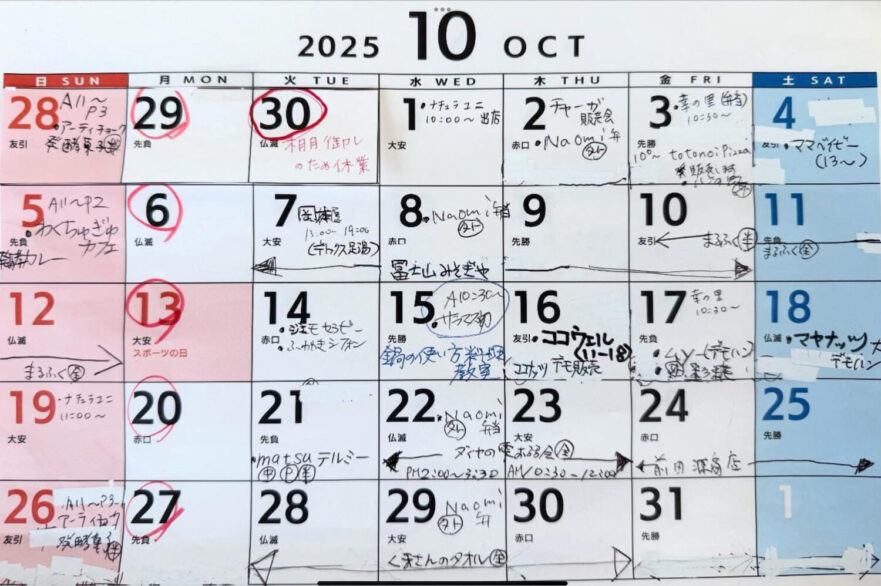 2025 10 OCT
日 SUN 月 MON 火 TUE 水 WED 木 THU 金 FRI 土 SAT
28
A11〜
P3
・アーティチョーク
発酵菓子
友引
29
先負
30
仏滅
のため休業
1
・ナチュラユニ
10:00〜出店
大安
2
チャーガ
販売会
・Naomi弁
外
赤口
3
菜の里(弁当)
10:30〜
先勝
totonoi Pizza
4
友引
・ママベイビー
(13〜)
5
A11〜P2
・わくちゅぎゅ
カフェ
カレー
先負
6
仏滅
7
13:00〜19:00
(デトックス足湯)
大安
8
・Naomi弁当
外
赤口
富士山みそぎゆ
9
先勝
10
友引
まるふく
11
先負
まるふく
12
仏滅
まるふく
13
大安
スポーツの日
14
赤口
・ジェモセラピー
・ふわかきシフォン
15
A10:30〜
先勝
鍋の使い方料理
教室
16
友引
ココウェル
(11-18)
デモ販売
17
菜の里
10:30〜
先負
・ムソー(デモハン)
18
仏滅
・マヤナッツ
デモハン
19
・ナチュラユニ
11:00〜
大安
20
赤口
21
先負
・matsuテルミー
22
・Naomi
外 弁当
仏滅
PM2:00〜3:30
23
大安
AM10:30-12:00
24
赤口
前田
商店
25
先勝
26
A11〜P3
アーティチョーク
発酵菓子
友引
27
先負
28
仏滅
29
Naomi
外 弁
大安
くまさんのタオル
30
赤口
31
先勝
1